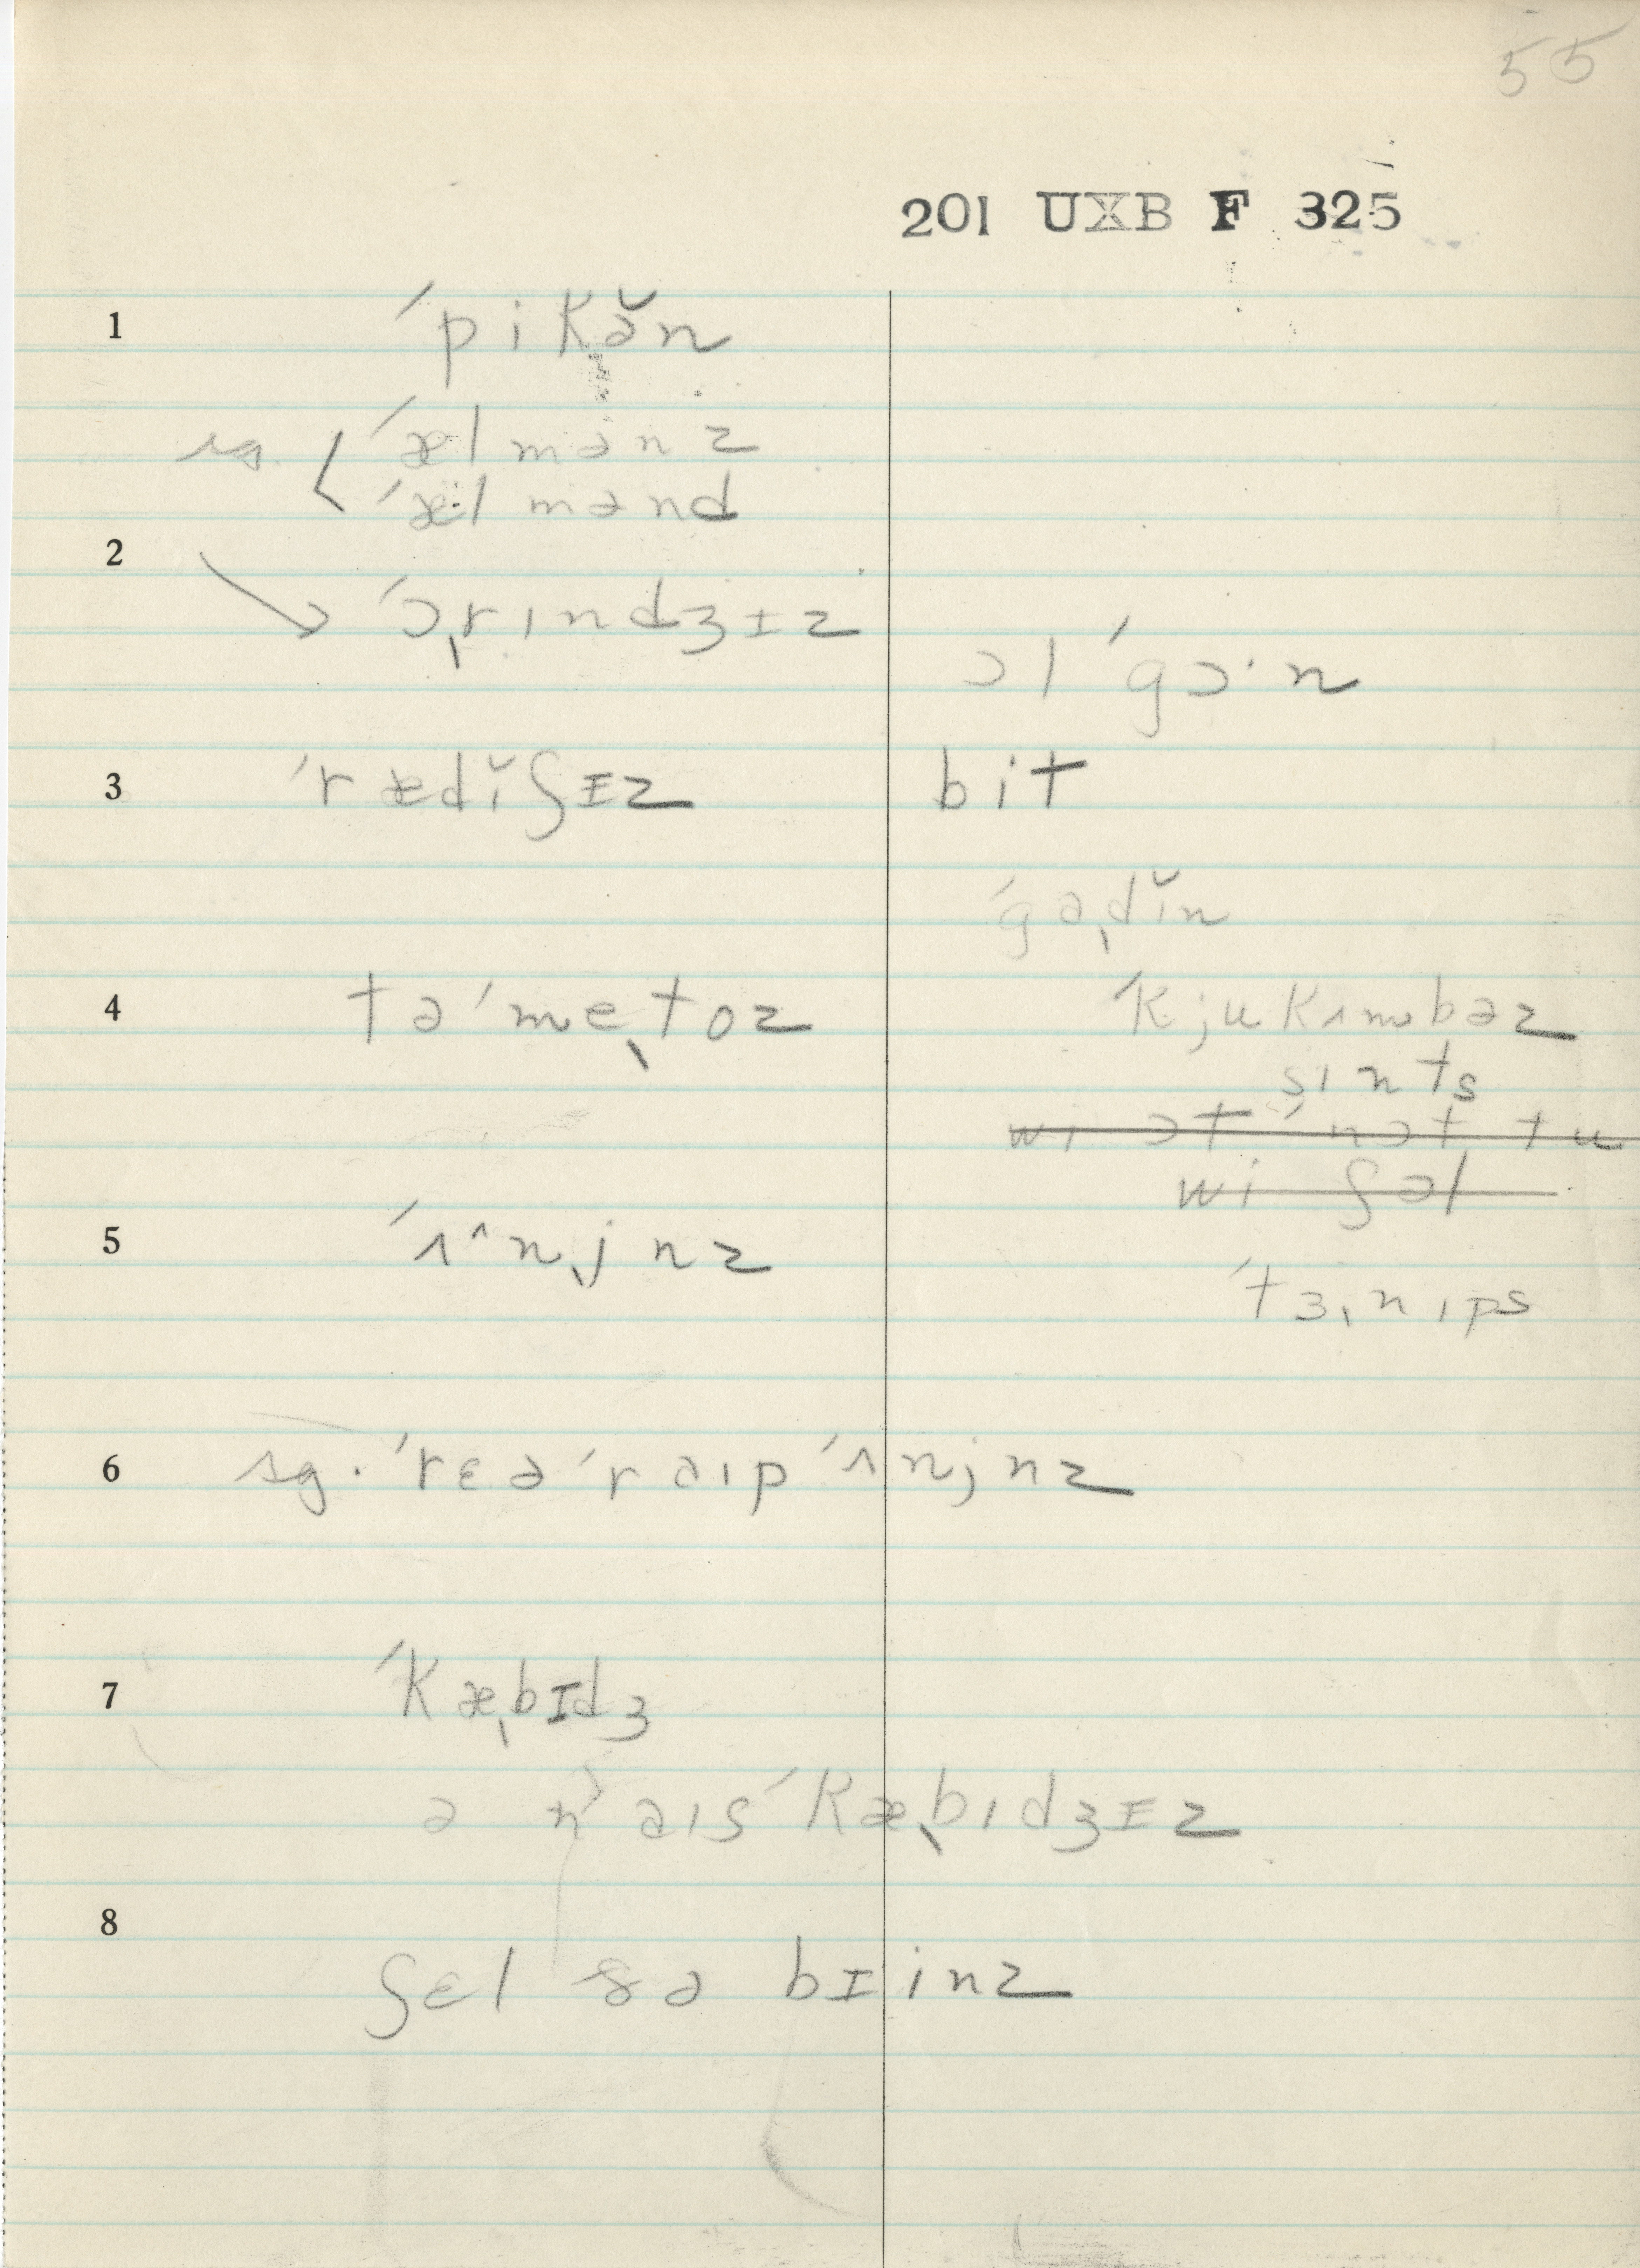 55
201 UXB F 325
1 ˊpikə̆n
sg. ˊælmənz
ˊælmənd
2 ˊɔ̨rɪndʒɪz
ɔlˊgɔ·n
3 ˊrædĭʃɪz
bit
ˊgɑ̨dĭn
4 təˊme̜toz
ˊkjukʌmbəz
sɪnts
wɪ ɔtˊnɔt tu
wi ʃəl
5 ˊʌ^n̜jnz
ˊtɜ̨nɪps
6 sg. ˊrɛəˊraɪpˊʌnjnz
7 ˊkæ̨bɪdʒ
ə nˊaɪsˊkæ̨bɪdʒɪz
8 ʃɛl ðə bɪinz